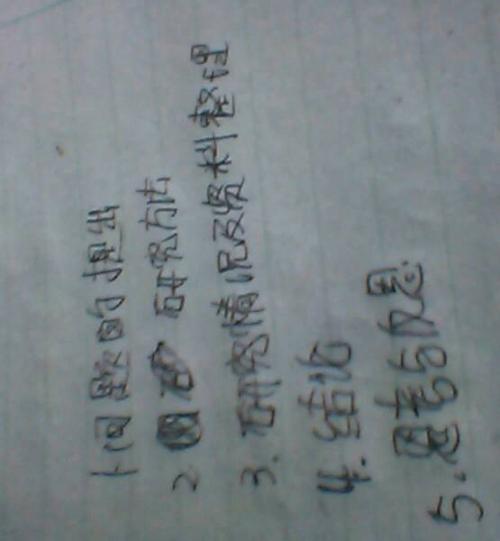 1 问题的提出
2 研究方法
3. 研究情况及资料整理
4. 结论
5. 思考与反思